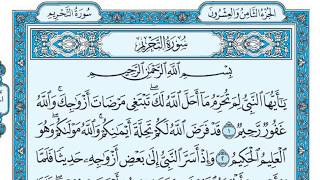 الجزء الثامن والعشرون
سورة التحريم
سُورَةُ التَّحْرِيمِ
بِسْمِ اللَّهِ الرَّحْمَٰنِ الرَّحِيمِ
يَٰٓأَيُّهَا ٱلنَّبِيُّ لِمَ تُحَرِّمُ مَآ أَحَلَّ ٱللَّهُ لَكَۖ تَبْتَغِي مَرْضَاتَ أَزْوَٰجِكَۚ وَٱللَّهُ
غَفُورٌ رَّحِيمٌ ١ قَدْ فَرَضَ ٱللَّهُ لَكُمْ تَحِلَّةَ أَيْمَٰنِكُمْۚ وَٱللَّهُ مَوْلَىٰكُمْۖ وَهُوَ
ٱلْعَلِيمُ ٱلْحَكِيمُ ٢ وَإِذْ أَسَرَّ ٱلنَّبِيُّ إِلَىٰ بَعْضِ أَزْوَٰجِهِۦ حَدِيثًا فَلَمَّا